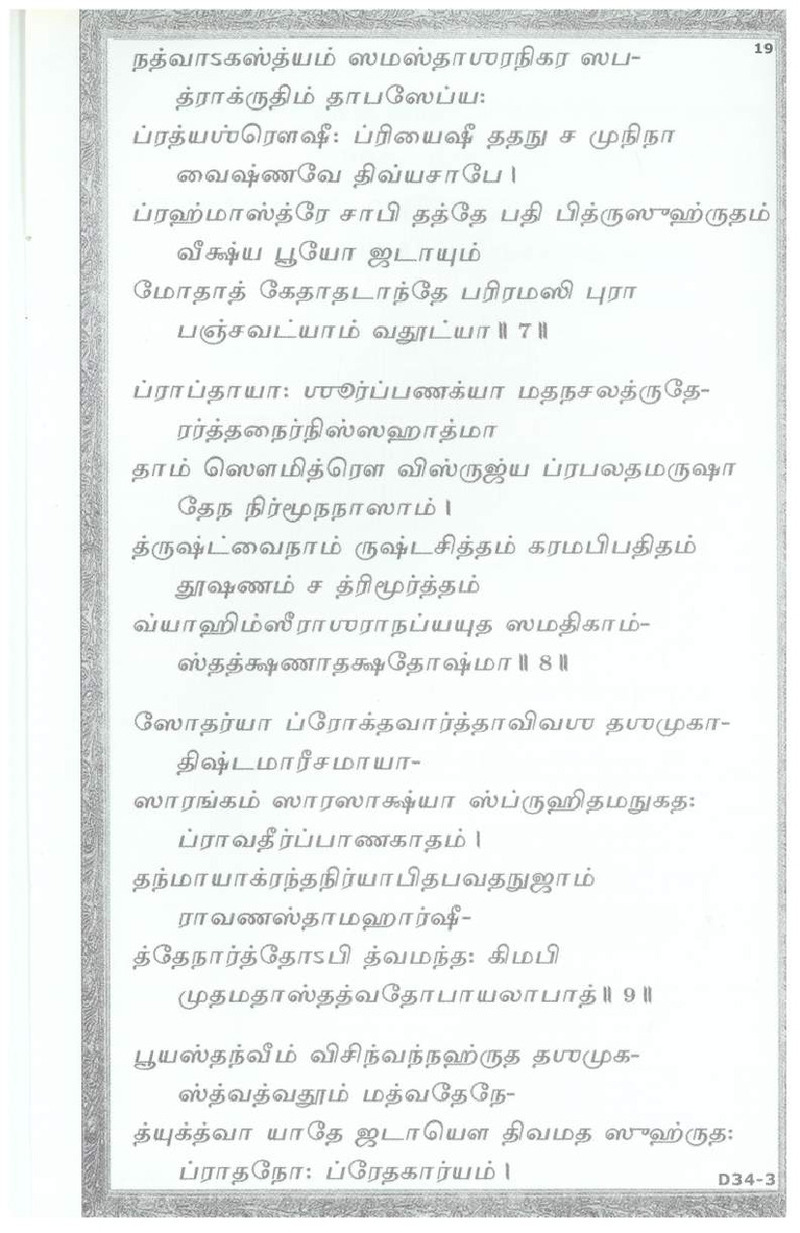 19
நத்வாऽகஸ்த்யம் ஸமஸ்தாஶரநிகர ஸப-
த்ராக்ருதிம் தாபஸேப்ய:
ப்ரத்யஶ்ரௌஷீ: ப்ரியைஷீ ததநு ச முநிநா
வைஷ்ணவே திவ்யசாபே ।
ப்ரஹ்மாஸ்த்ரே சாபி தத்தே பதி பித்ருஸுஹ்ருதம்
வீக்ஷ்ய பூயோ ஜடாயும்
மோதாத் கேதாதடாந்தே பரிரமஸி புரா
பஞ்சவட்யாம் வதூட்யா ॥ 7 ॥
ப்ராப்தாயா: ஶூர்ப்பணக்யா மதநசலத்ருதே-
ரர்த்தநைர்நிஸ்ஸஹாத்மா
தாம் ஸௌமித்ரௌ விஸ்ருஜ்ய ப்ரபலதமருஷா
தேந நிர்மூநநாஸாம் ।
த்ருஷ்ட்வைநாம் ருஷ்டசித்தம் கரமபிபதிதம்
தூஷணம் ச த்ரிமூர்த்தம்
வ்யாஹிம்ஸீராஶராநப்யயுத ஸமதிகாம்-
ஸ்தத்க்ஷணாதக்ஷதோஷ்மா ॥ 8 ॥
ஸோதர்யா ப்ரோக்தவார்த்தாவிவஶ தஶமுகா-
திஷ்டமாரீசமாயா-
ஸாரங்கம் ஸாரஸாக்ஷ்யா ஸ்ப்ருஹிதமநுகத:
ப்ராவதீர்ப்பாணகாதம் ।
தந்மாயாக்ரந்தநிர்யாபிதபவதநுஜாம்
ராவணஸ்தாமஹார்ஷீ-
த்தேநார்த்தோऽபி த்வமந்த: கிமபி
முதமதாஸ்தத்வதோபாயலாபாத் ॥ 9 ॥
பூயஸ்தந்வீம் விசிந்வந்நஹ்ருத தஶமுக-
ஸ்த்வத்வதூம் மத்வதேநே-
த்யுக்த்வா யாதே ஜடாயௌ திவமத ஸுஹ்ருத:
ப்ராதநோ: ப்ரேதகார்யம் ।
D34-3